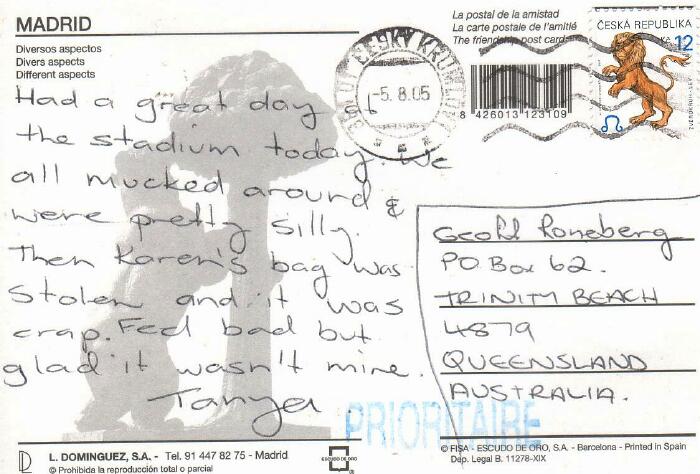 MADRID
Diversos aspectos
Divers aspects
Different aspects
La postal de la amistad
La carte postale de l'amitié
The friendship post card
ČESKÁ REPUBLIKA
Kč 12
ČESKÝ KRUMLOV
-5. 8. 05
8 426013 123109
Had a great day at
the stadium today. We
all mucked around &
were pretty silly.
Then Karen's bag was
stolen and it was
crap. Feel bad but
glad it wasn't mine.
Tanya
Geoff Roneberg
PO Box 62.
TRINITY BEACH
4879
QUEENSLAND
AUSTRALIA.
PRIORITAIRE
L. DOMINGUEZ, S.A. - Tel. 91 447 82 75 - Madrid
© Prohibida la reproducción total o parcial
ESCUDO DE ORO
© FISA - ESCUDO DE ORO, S.A. - Barcelona - Printed in Spain
Dep. Legal B. 11278-XIX